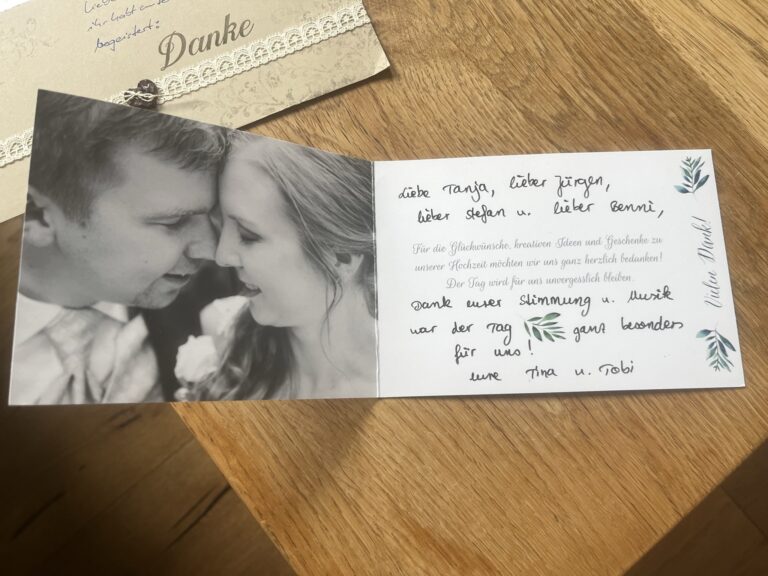 Liebe
ihr habt
begeistert:
Danke
Liebe Tanja, lieber Jürgen,
lieber Stefan u. lieber Benni,
Für die Glückwünsche, kreativen Ideen und Geschenke zu
unserer Hochzeit möchten wir uns ganz herzlich bedanken!
Der Tag wird für uns unvergesslich bleiben.
Dank eurer Stimmung u. Musik
war der Tag ganz besonders
für uns!
eure Tina u. Tobi
Vielen Dank!